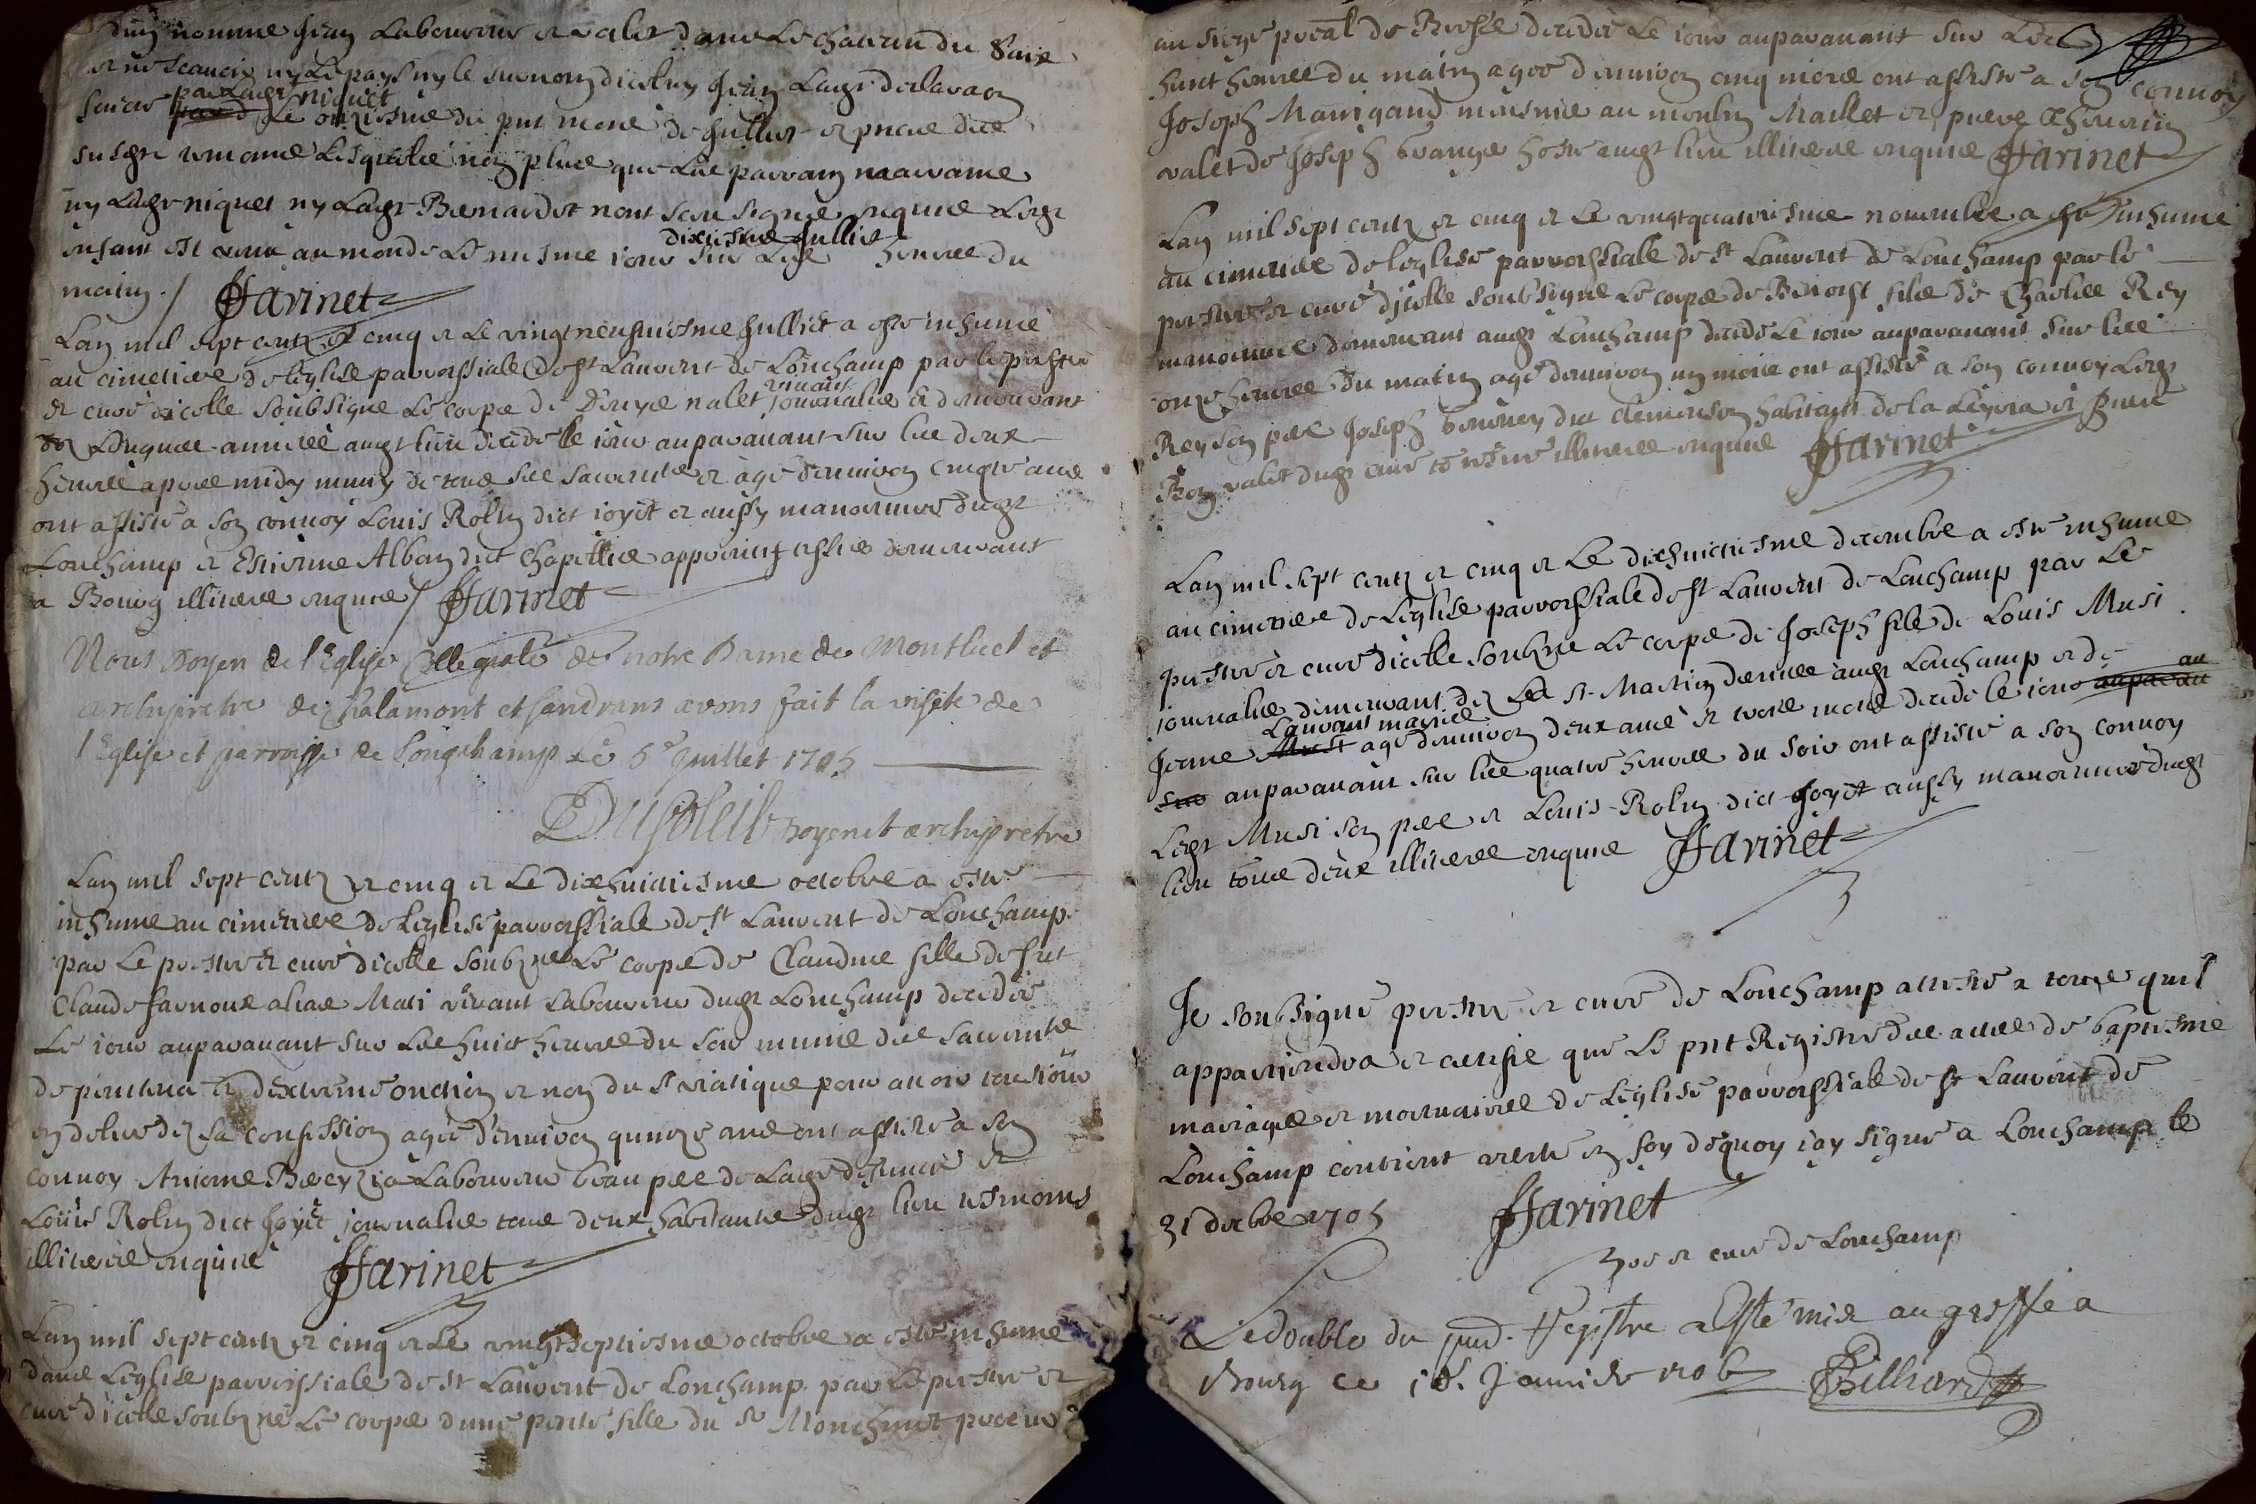 dun nomme Jean Laboureur et valet dans Le chateau du Saix
et ne scaucir ny Le pays ny le surnom dicelny Jean Lagr declaraon
faicte par Lagr niquet Le onziesme du pnt mois de Juillet et pnce des
susdts romains Lesquels non plus que Les parrain marraine
ny Lagr niquet ny Lagr Bernardet nont sceu signer enquis Legr
enfant est venu au monde Le mesme iour dixiesme Juillet sur Les heures du
matin ./ FFarinet
Lan mil sept centz et cinq et Le vingtneufuiesme Juilliet a este inhume
au cimetiere de leglise parrossiale de st Laurent de Lonchamp par le prestre
et cure dicelle soubsigne Le corps de Denys nalet vivant journalier et demeurant
Longues annees audt lieu decede le iour auparauant sur les deux
heures apres midy muny de tous ses sacrements et age denuiron cinqte ans
ont assiste a son conuoy Louis Rolin dict joyet et aussy manoeuure dudt
Lonchamp et Estienne Alban dict Chapellier demeurant
a Bourg illiteres enquis / FFarinet
Nous Doyen de l'Eglise Collegiale de notre Dame de Montluel et
archipretre de Chalamont et sandrans avons fait la visite de
l'Eglise et parroisse de Longchamp ce 5e Juillet 1705
Dusoleil Doyen et archipretre
Lan mil sept centz et cinq et Le dixhuictiesme octobre a este
inhume au cimetiere de leglise parrossiale de st Laurent de Lonchamp
par Le prestre et cure dicelle soubzne Le corps de Claudine fille de fut
Claude farnoux alias Mati viuant Laboureur dudt Lonchamp decedee
Le iour auparauant sur Les huict heures du soir munie des sacrements
de penitence et dextreme onction et non du st viatique pour auoir tousiour
en delire dez sa confession agee denuiron quinze ans ont assiste a son
conuoy Antoine Laboureur beau pere de Lagr defuncte et
Louis Rolin dict Joyet journalier tous deux habitants dudt lieu tesmoins
illiteres enquis FFarinet
Lan mil sept centz et cinq et Le vingtseptiesme octobre a este inhume
dans Leglise parroissiale de st Laurent de Lonchamp par Le prestre et
cure dicelle soubzne Le corps dune petite fille du sr Monchinet procureur
au siege presal de Bresse decedee Le iour auparauant sur Les
huict heures du matin agee denuiron cinq mois ont assiste a son conuoy
Joseph Marrigand meusnier au moulin Maillet et pierre Theuenin
valet de Joseph Grange hoste audt lieu illiteres enquis FFarinet
Lan mil sept centz et cinq et Le vingtquatriesme nouembre a este inhume
au cimetiere de leglise parrossiale de st Laurent de Lonchamp par le
prestre et cure dicelle soubsigne Le corps de Benoist fils de Charles Rey
manoeuure demeurant audt Lonchamp decede Le iour auparauant sur les
onze heures du matin age denuiron un mois ont assiste a son conuoy Legr
Rey son pere Joseph bourney dict clemenson habitant de la Leyria et pierre
Bon valet dudt cure tesmoins illiteres enquis FFarinet
Lan mil sept centz et cinq et Le dixhuictiesme decembre a este inhume
au cimetiere de Leglise parrossiale de st Laurent de Lonchamp par Le
prestre et cure dicelle soubzne Le corps de Joseph fils de Louis Musi
journalier demeurant dez Les st Martin dernier audt Lonchamp et de
Jeanne Laurant maries age denuiron deux ans et trois mois decede le iour au
auparauant sur les quatre heures du soir ont assiste a son conuoy
Legr Musi son pere et Louis Rolin dict Joyet aussy manoeuure dudt
lieu tous deux illiteres enquis FFarinet
Je soubsigne prestre et cure de Lonchamp atteste a tous quil
appartiendra et certifie que Le pnt Registre des actes de baptesme
mariages et mortuaires de Leglise parrossiale de st Laurent de
Lonchamp contient verite en foy dequoy jay signe a Lonchamp le
31 decbre 1705 FFarinet
ptre et cure de Lonchamp
Le double du pnt. Registre a Esté mis au greffe a
Bourg ce Januier 1706 Billiard